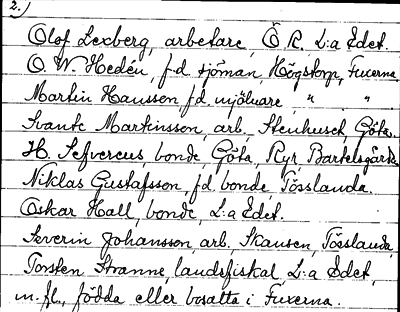 2.)
Olof Lexberg, arbetare, Ö R. L:a Edet.
O. W. Hedén, f.d tjöman, Högstorp, Fuxerna
Martin Hansson, f.d. mjölnare " "
Svante Martinsson, arb. Stenhuset, Göta.
H. Sefvereus, bonde Göta, Ryr Bartelsgärde
Niklas Gustafsson, f.d. bonde, Tösslanda.
Oskar Hall, bonde, L:a Edet.
Severin Johansson, arb. Skansen, Tösslanda,
Torsten Stranne, landsfiskal, L:a Edet,
m.fl., födda eller bosatta i Fuxerna.